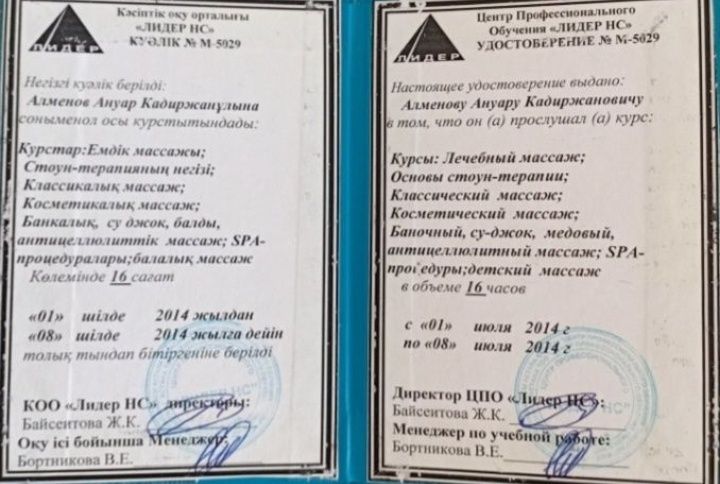 ЛИДЕР
Кәсіптік оқу орталығы
«ЛИДЕР НС»
КУӘЛІК № М-5029
Негізгі куәлік берілді:
Алменов Ануар Кадиржанұлына
соныменол осы курстытындады:
Курстар:Емдік массажы;
Стоун-терапияның негізі;
Классикалық массаж;
Косметикалық массаж;
Банкалық, су джок, балды,
антицеллюлиттік массаж; SPA-
процедуралары;балалық массаж
Көлемінде 16 сағат
«01» шілде 2014 жылдан
«08» шілде 2014 жылға дейін
толық тыңдап бітіргеніне берілді
КОО «Лидер НС» директоры:
Байсеитова Ж.К.
Оқу ісі бойынша Менеджер:
Бортникова В.Е.
ЛИДЕР
Центр Профессионального
Обучения «ЛИДЕР НС»
УДОСТОВЕРЕНИЕ № М-5029
Настоящее удостоверение выдано:
Алменову Ануару Кадиржановичу
в том, что он (а) прослушал (а) курс:
Курсы: Лечебный массаж;
Основы стоун-терапии;
Классический массаж;
Косметический массаж;
Баночный, су-джок, медовый,
антицеллюлитный массаж; SPA-
процедуры;детский массаж
в объеме 16 часов
с «01» июля 2014 г
по «08» июля 2014 г
Директор ЦПО «Лидер НС»:
Байсеитова Ж.К.
Менеджер по учебной работе:
Бортникова В.Е.